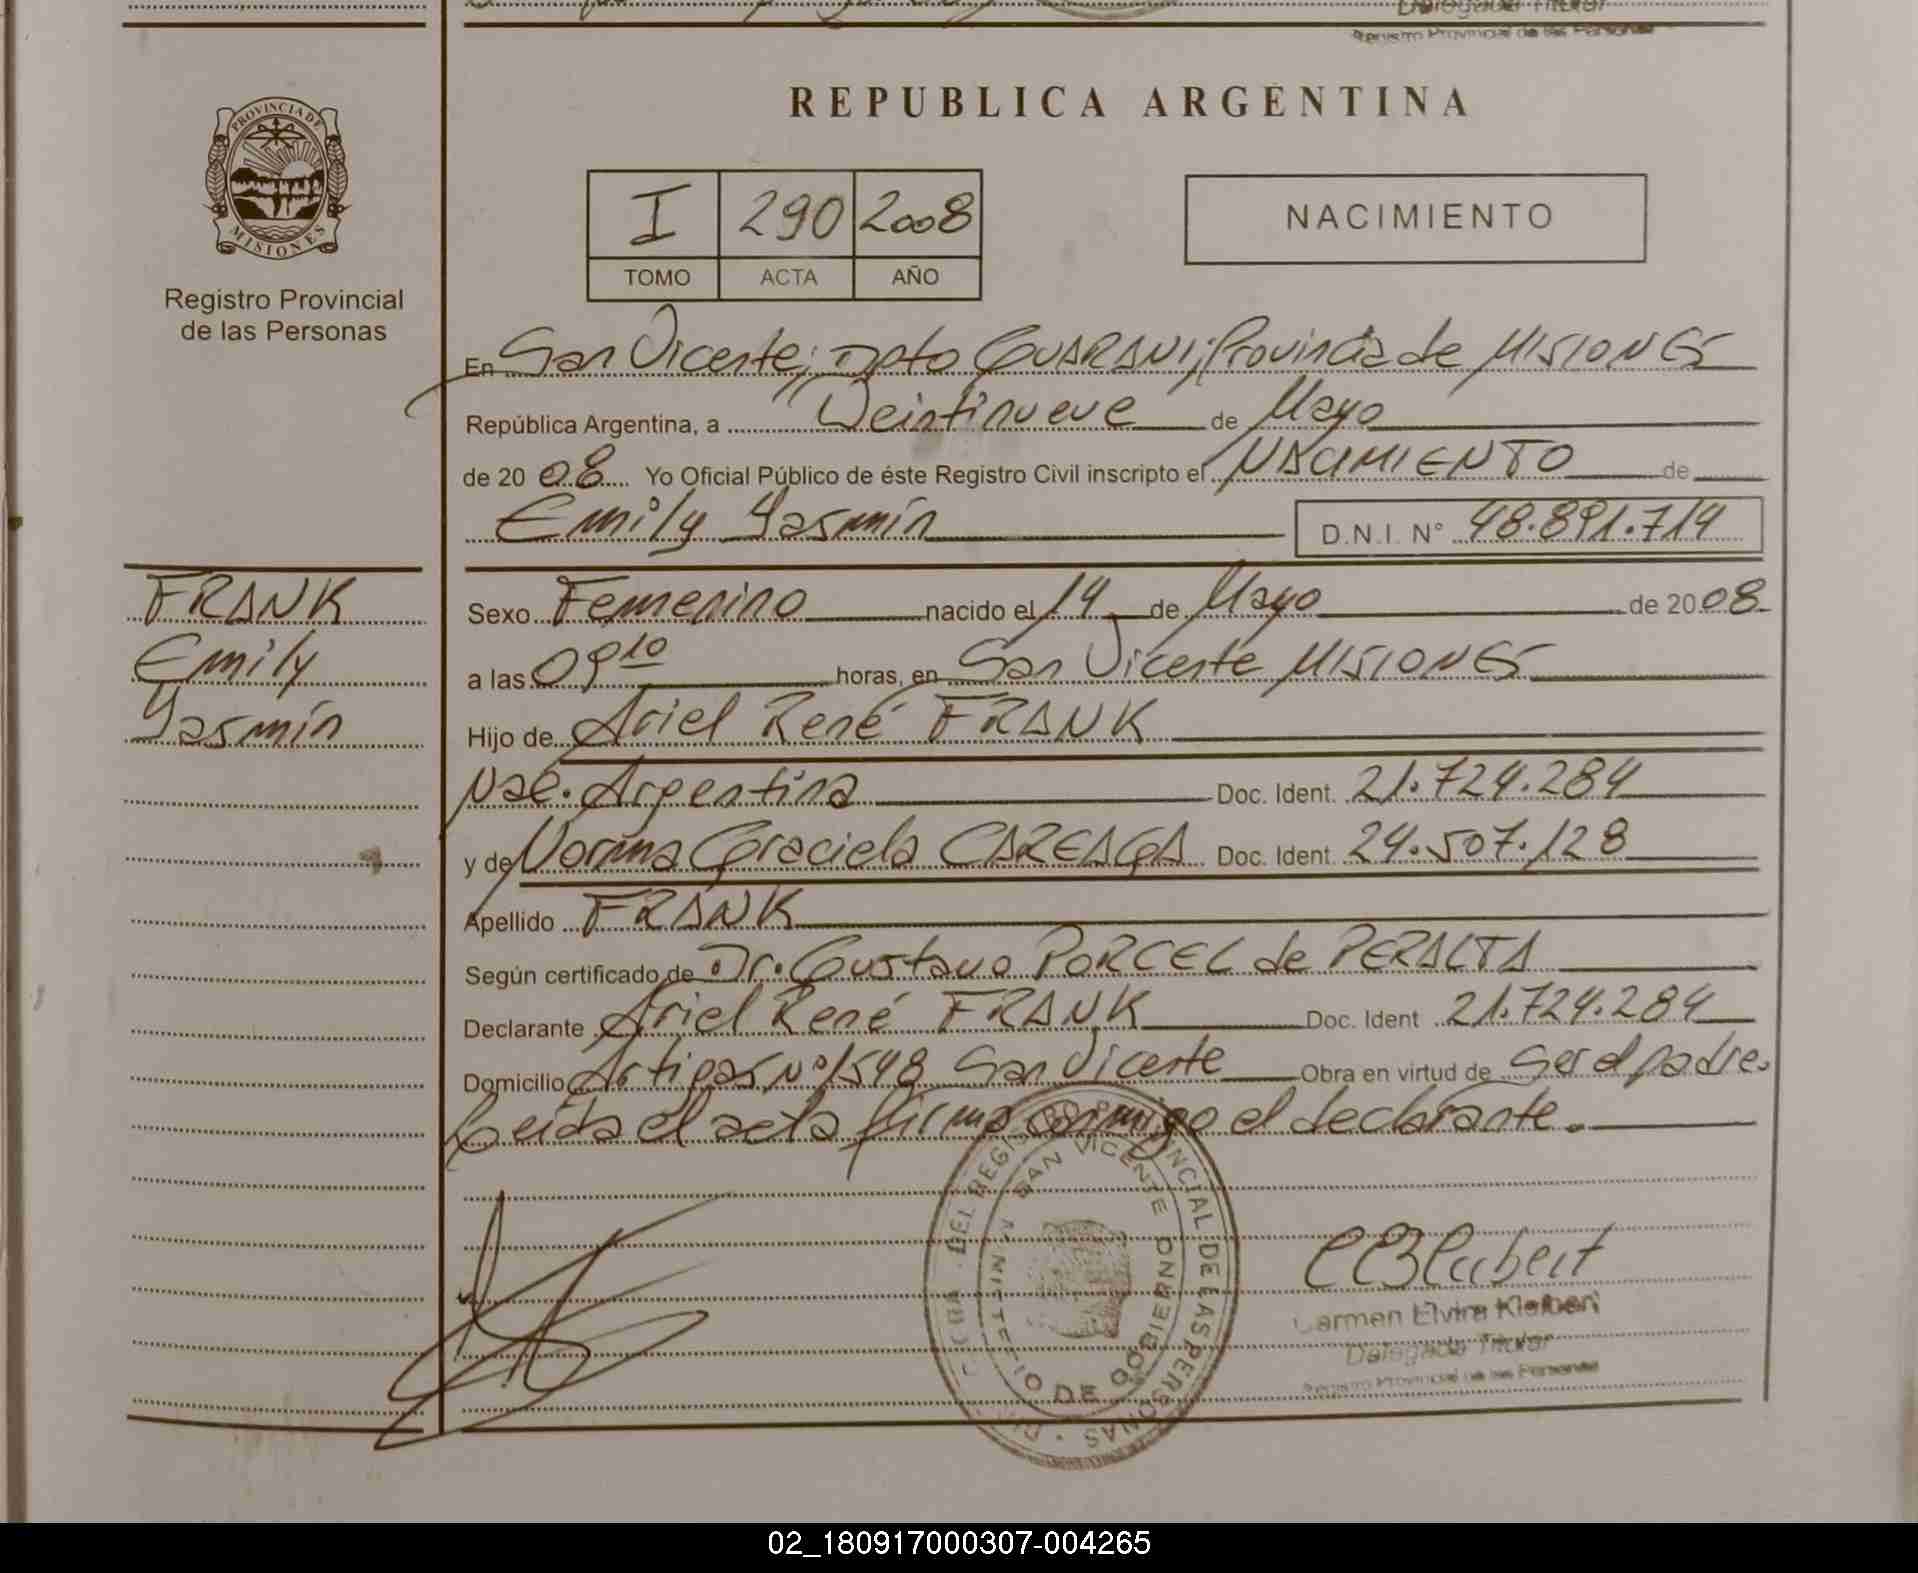 Delegada Titular
Registro Provincial de las Personas
PROVINCIA DE MISIONES
Registro Provincial
de las Personas
REPUBLICA ARGENTINA
I 290 2008
TOMO ACTA AÑO
NACIMIENTO
En San Vicente; Dpto GUARANI; Provincia de MISIONES
República Argentina, a Veintinueve de Mayo
de 20 08 Yo Oficial Público de éste Registro Civil inscripto el NACIMIENTO de
Emily Yasmín D.N.I. N° 48.891.714
FRANK
Emily
Yasmín
Sexo Femenino nacido el 14 de Mayo de 20 08
a las 09 10 horas, en San Vicente MISIONES
Hijo de Ariel René FRANK
Nac. Argentina Doc. Ident. 21.724.284
y de Norma Graciela CAREAGA Doc. Ident. 24.507.128
Apellido FRANK
Según certificado de Dr. Gustavo PORCEL de PERALTA
Declarante Ariel René FRANK Doc. Ident 21.724.284
Domicilio Artigas Nº 1548 San Vicente Obra en virtud de Ser el padre.
Leída el acta firma conmigo el declarante.
DEL REGISTRO PROVINCIAL DE LAS PERSONAS
SAN VICENTE
MINISTERIO DE GOBIERNO
Carmen Elvira Kleibert
Delegada Titular
Registro Provincial de las Personas
02_180917000307-004265